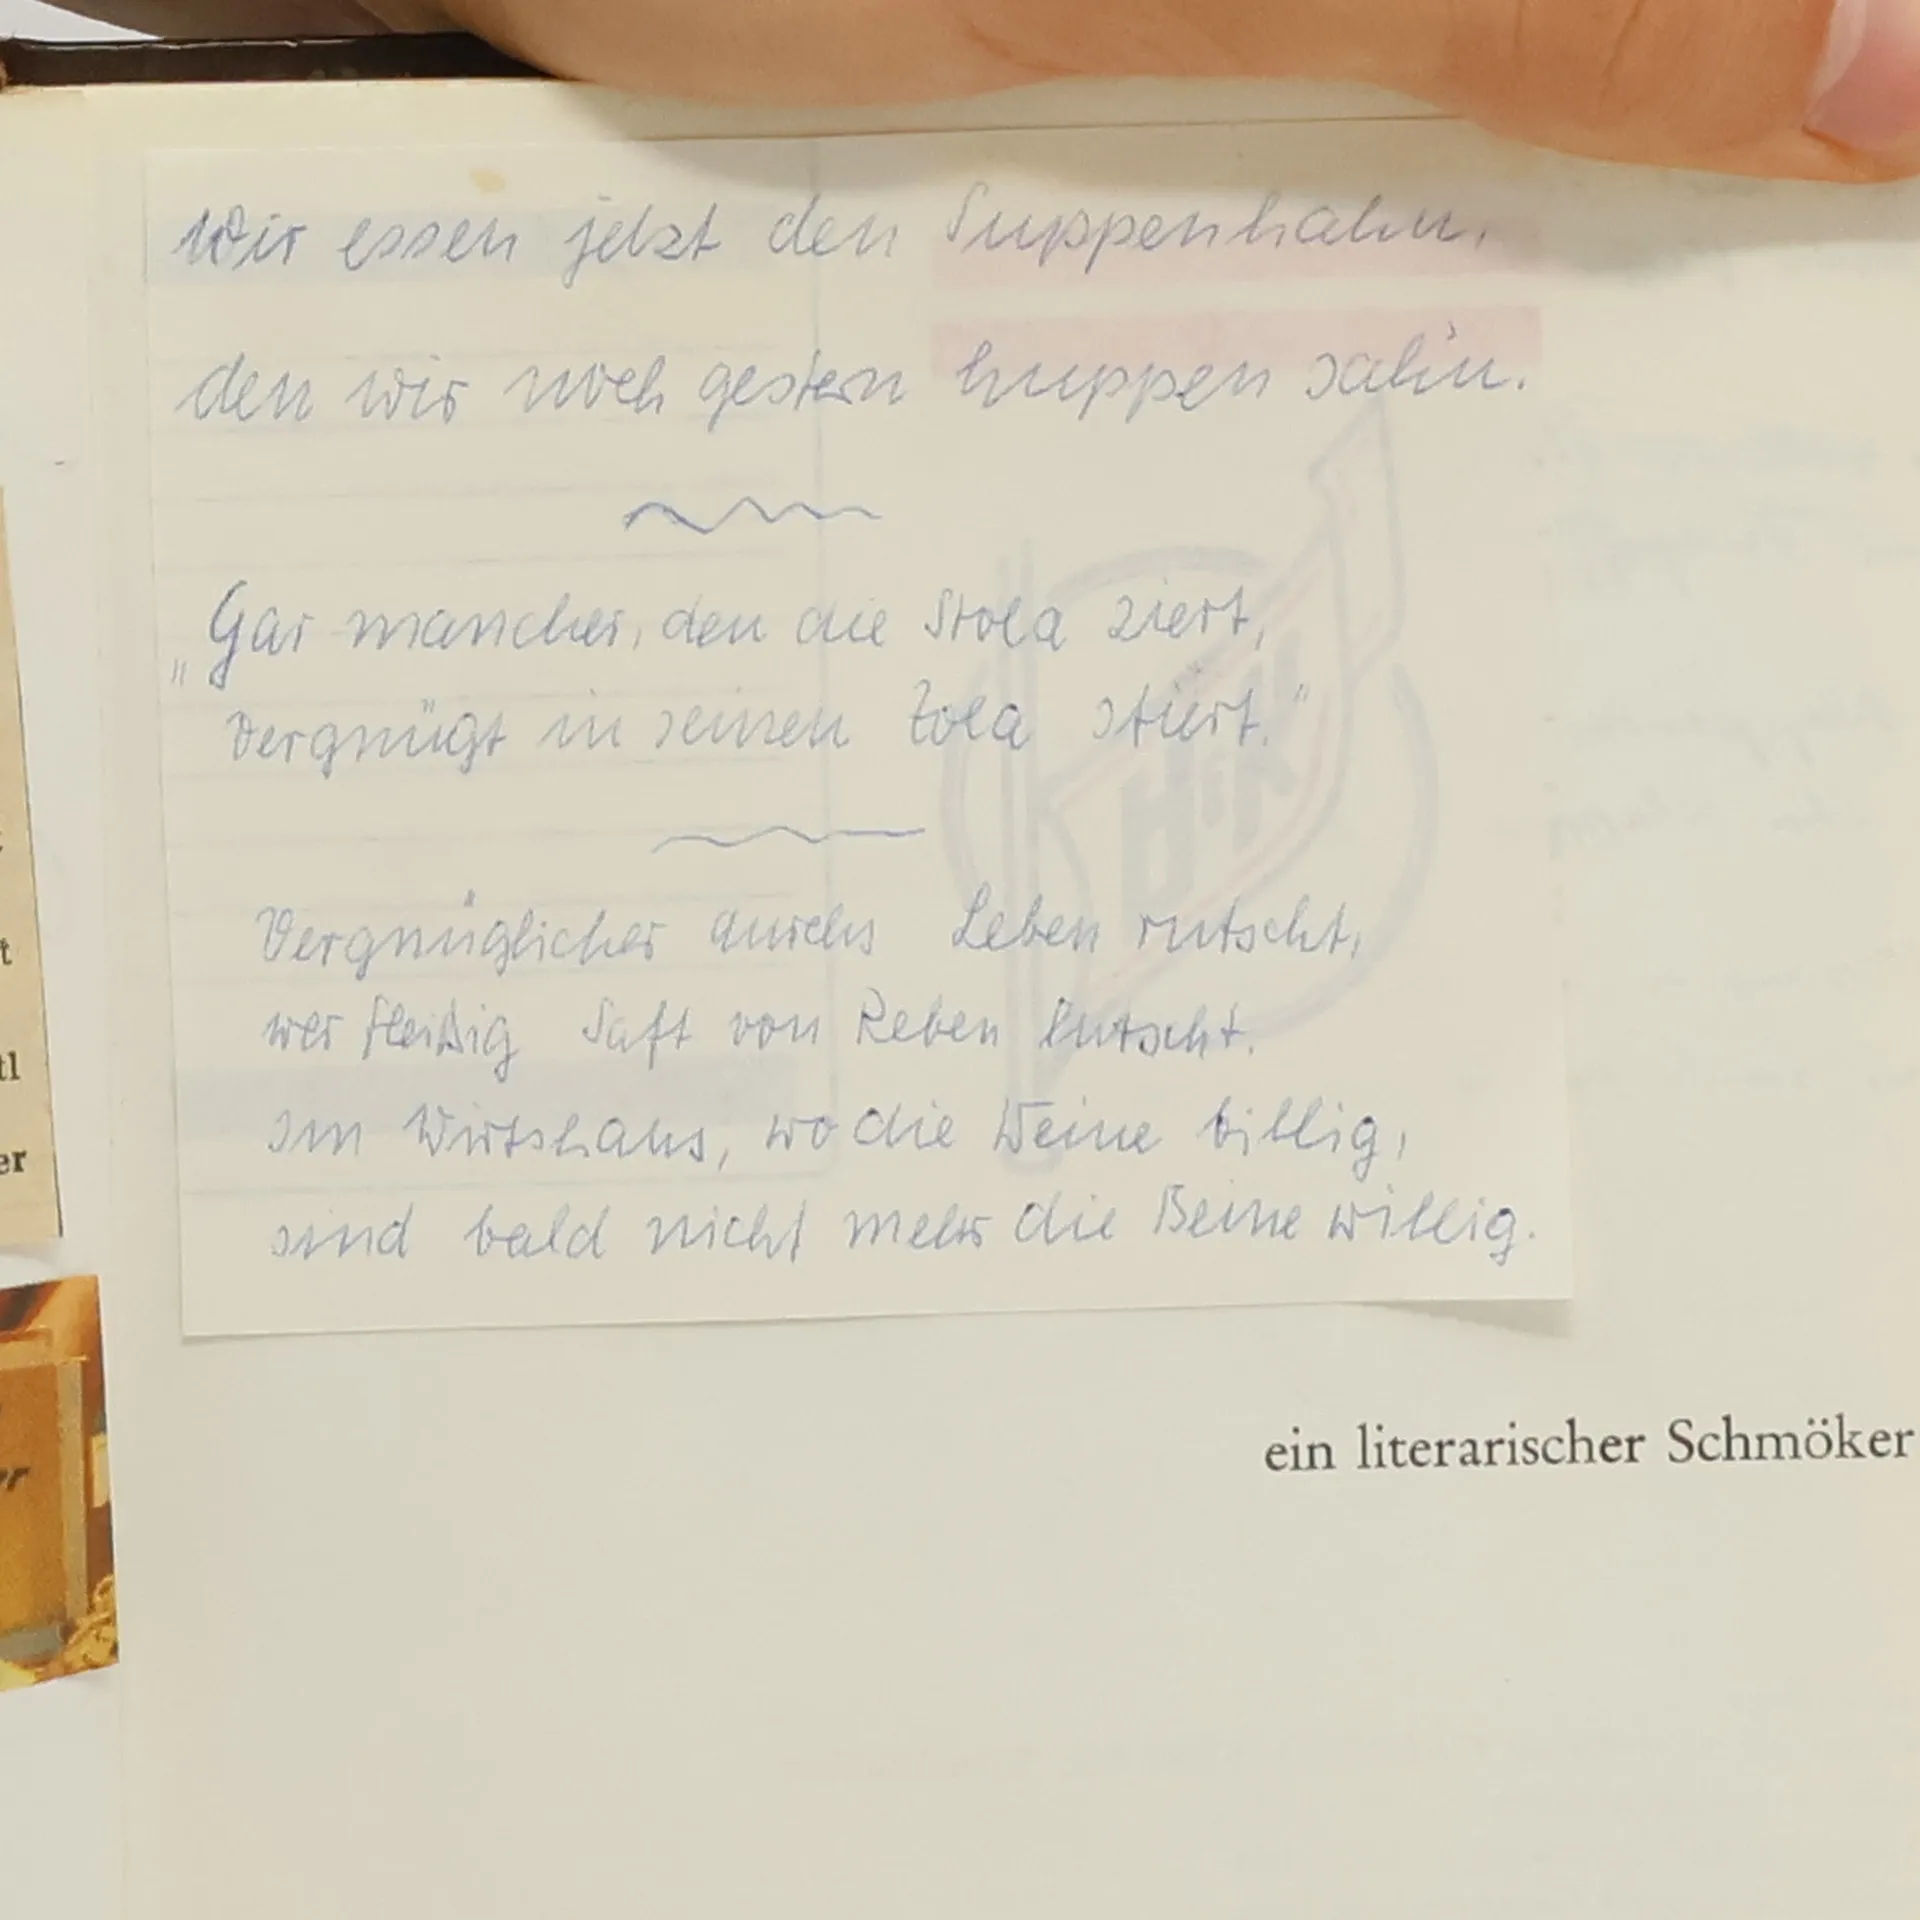 Wir essen jetzt den Suppenhahn,
den wir noch gestern huppen sah'n.
„Gar mancher, den die Stola ziert,
vergnügt in seinen Zola stiert.“
Vergnüglicher durchs Leben rutscht,
wer fleißig Saft von Reben lutscht.
Im Wirtshaus, wo die Weine billig,
sind bald nicht mehr die Beine willig.
ein literarischer Schmöker
t
tl
er
er